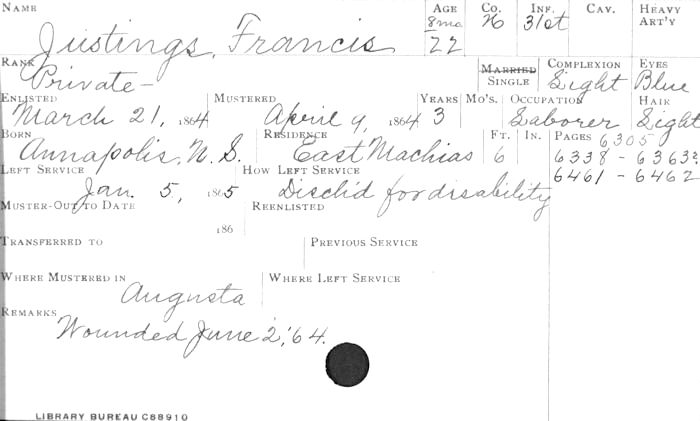 NAME AGE CO. INF. CAV. HEAVY ART'Y
Justings, Francis 8mo 22 H 31st
RANK MARRIED SINGLE COMPLEXION EYES
Private- Light Blue
ENLISTED MUSTERED YEARS MO'S. OCCUPATION HAIR
March 21, 1864 April 9, 1864 3 Laborer Light
BORN RESIDENCE FT. IN. PAGES 6305
Annapolis, N. S. East Machias 6 6338 - 6363
6461 - 6462
LEFT SERVICE HOW LEFT SERVICE
Jan. 5, 1865 Disch'd for disability
MUSTER-OUT TO DATE REENLISTED
186
TRANSFERRED TO PREVIOUS SERVICE
WHERE MUSTERED IN WHERE LEFT SERVICE
Augusta
REMARKS
Wounded June 2,'64.
LIBRARY BUREAU C88910